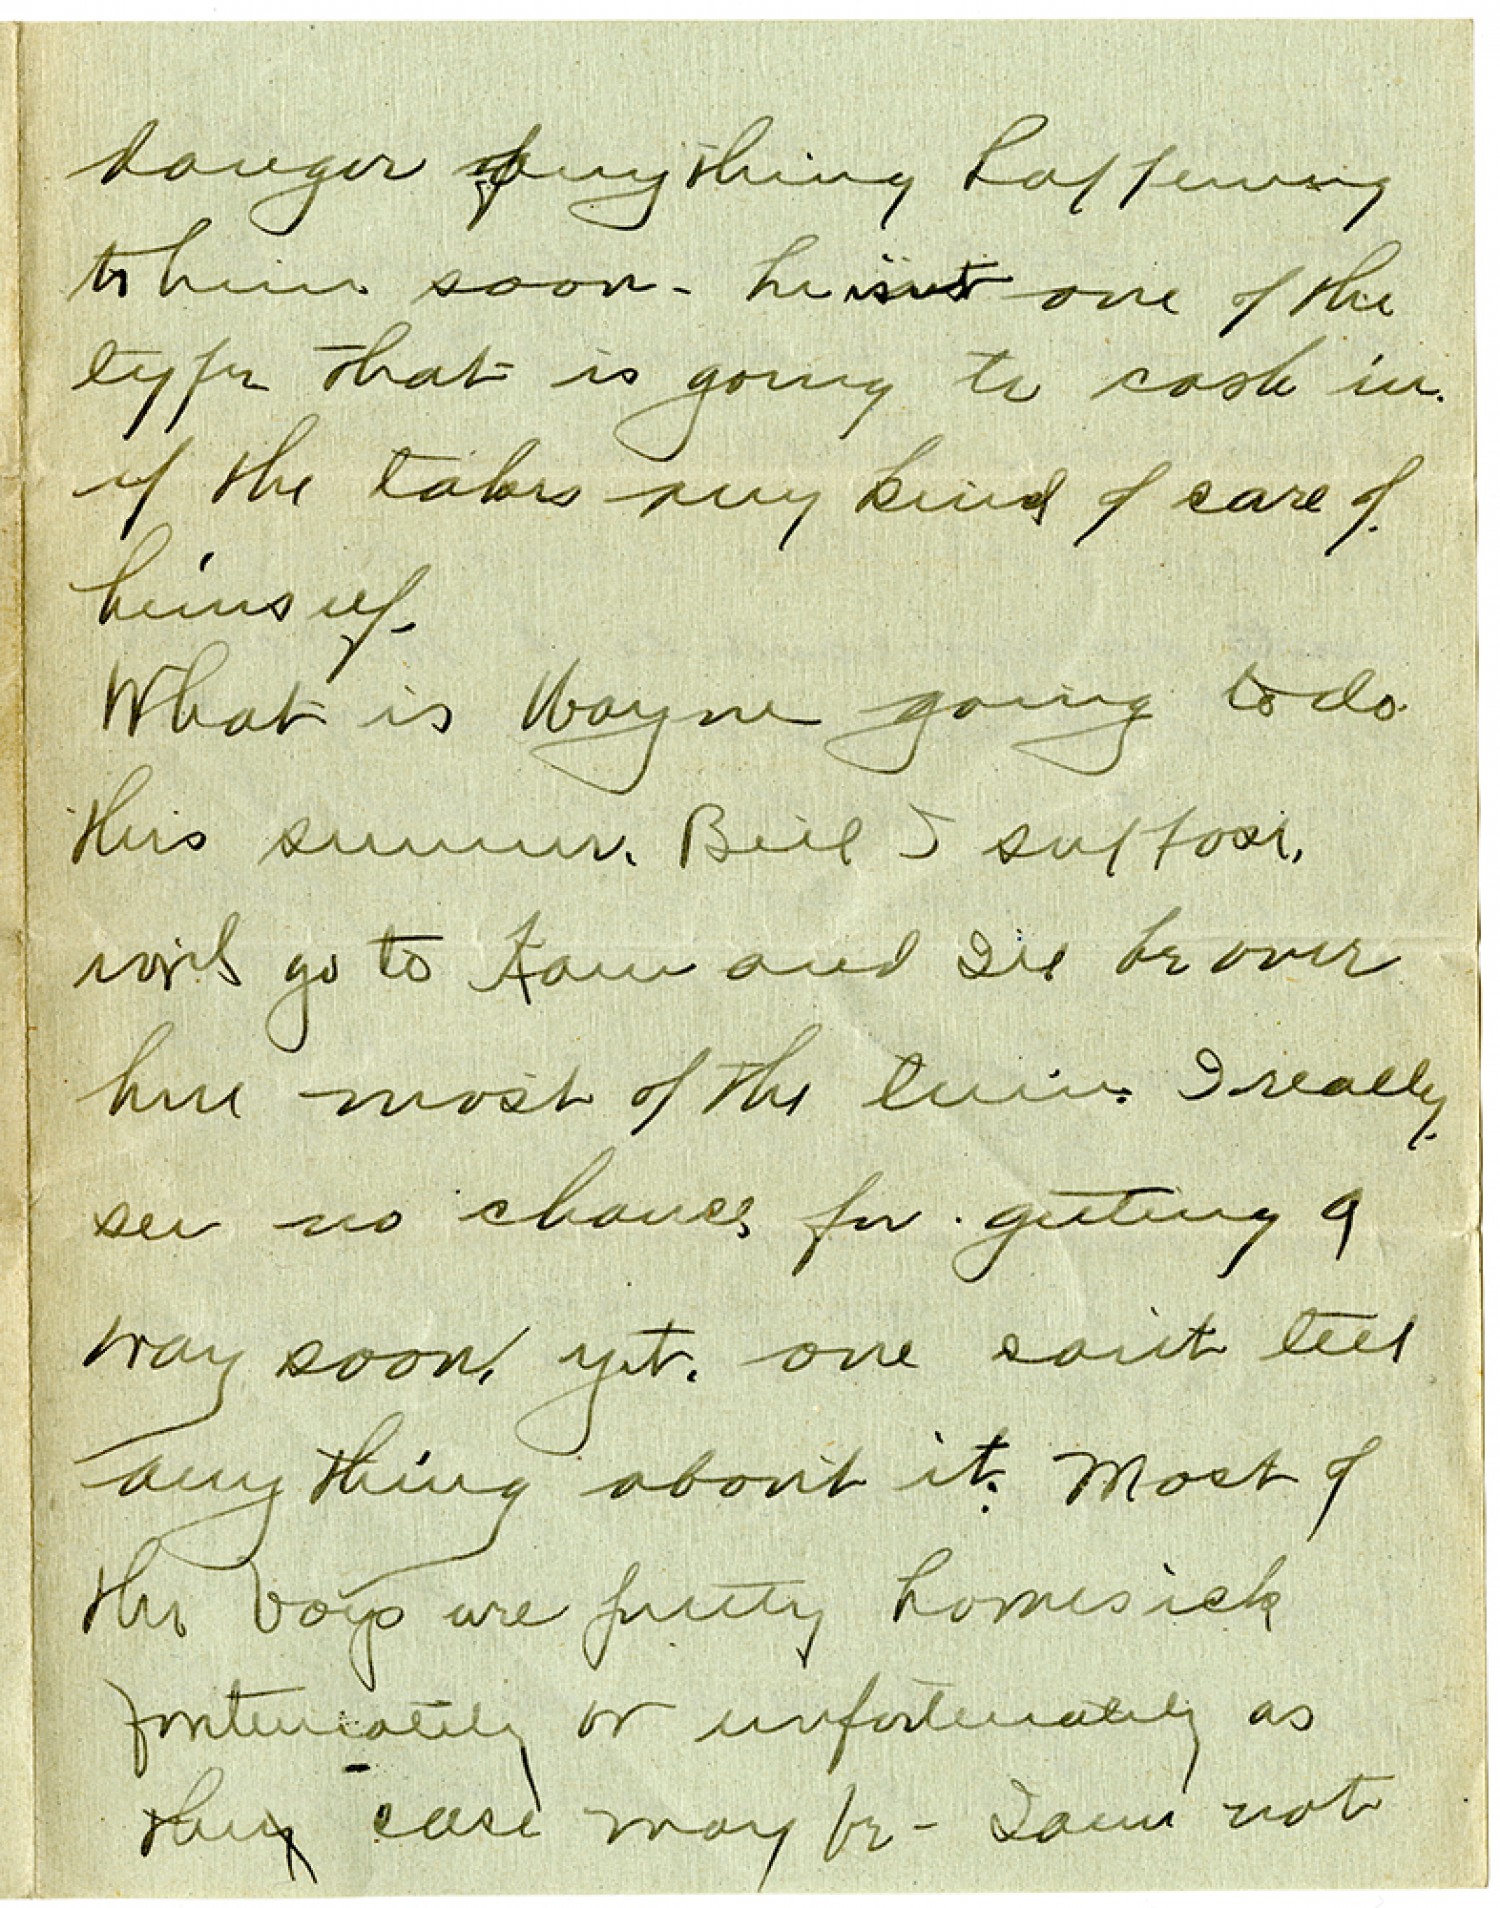 danger of anything happening
to him soon - he isnt one of the
type that is going to cash in.
if the takes any kind of care of
himself.
What is Wayne going to do
this summer. Bill I suppose.
will go to and Ill be over
here most of the time. I really
see no chances for getting a
way soon, yet. one can't tell
anything about it. Most of
the boys are pretty homesick
fortunately or unfortunately as
they case may be - I am not